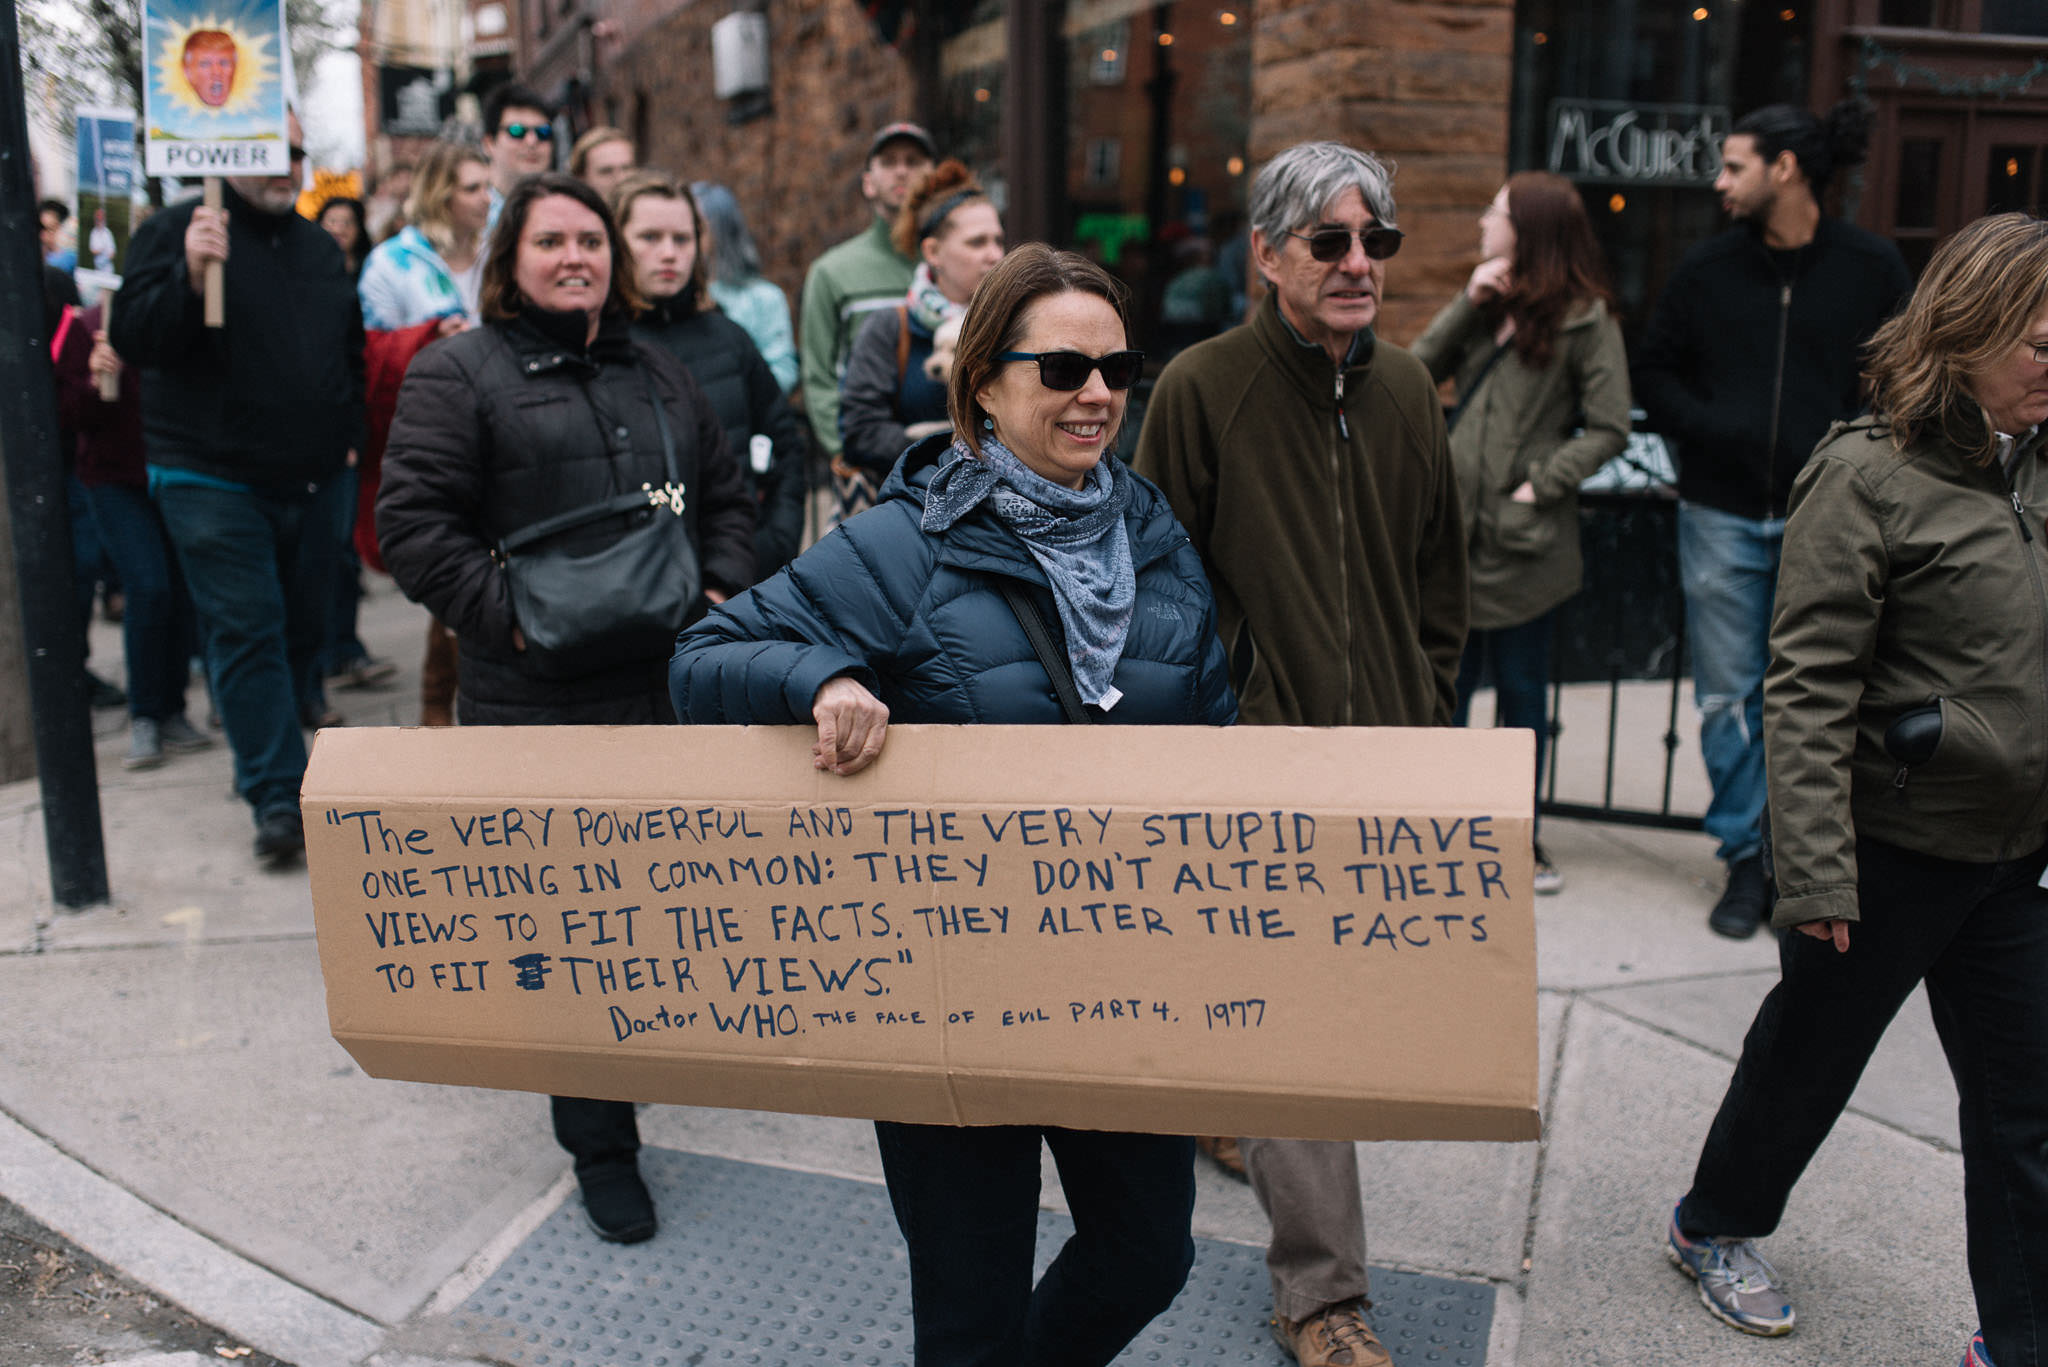 POWER
McGUIRE'S
"The VERY POWERFUL AND THE VERY STUPID HAVE
ONE THING IN COMMON: THEY DON'T ALTER THEIR
VIEWS TO FIT THE FACTS. THEY ALTER THE FACTS
TO FIT THEIR VIEWS."
Doctor WHO. THE FACE OF EVIL PART 4. 1977